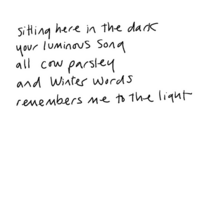 sitting here in the dark
your luminous song
all cow parsley
and Winter words
remembers me to the light